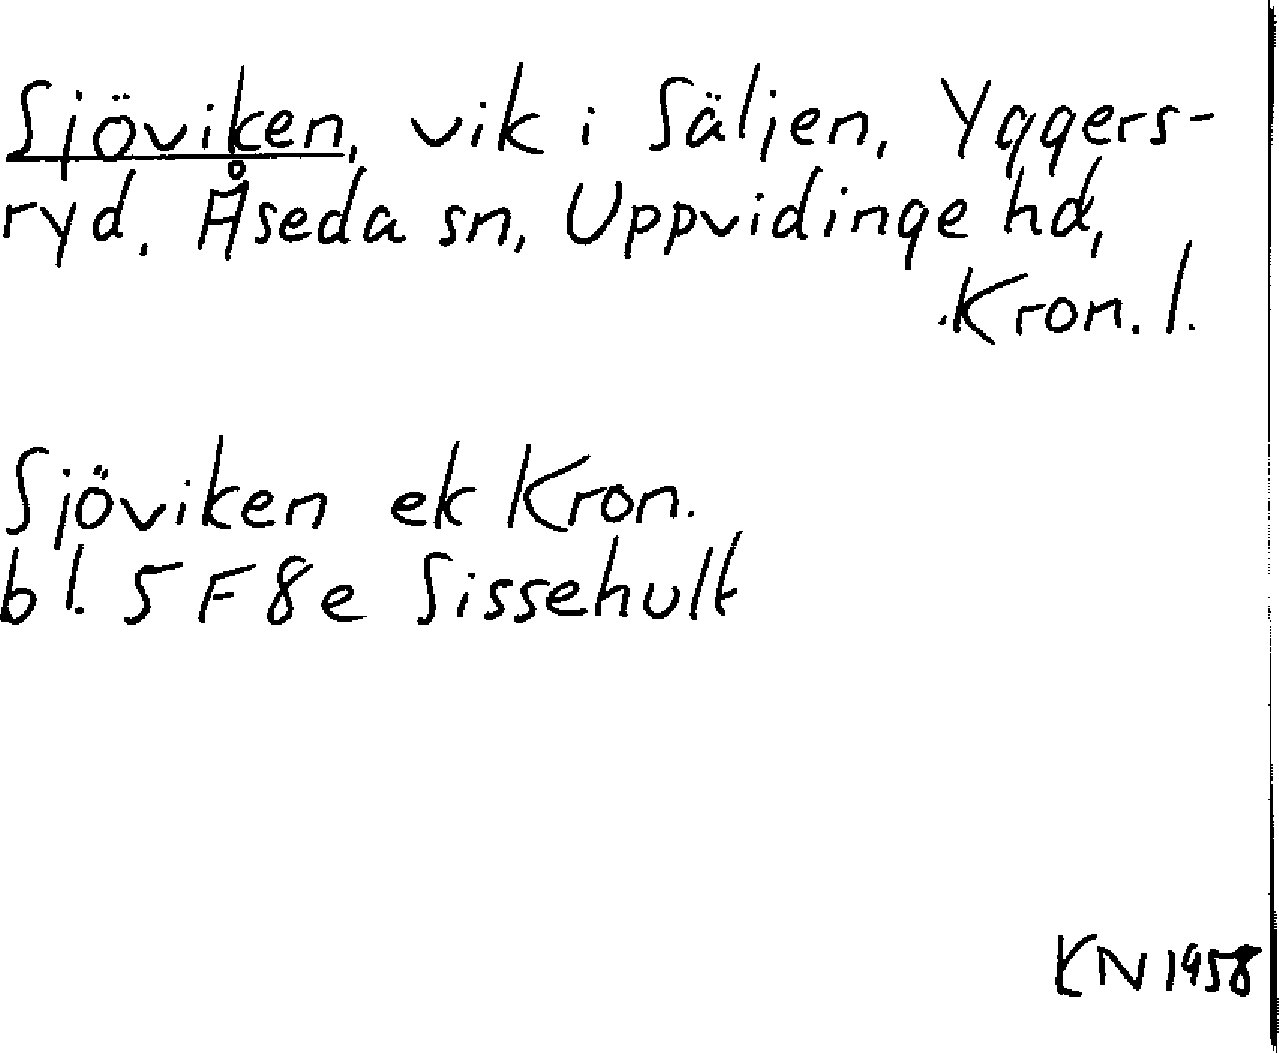 Sjöviken, vik i Säljen, Yggers-
ryd, Åseda sn, Uppvidinge hd,
Kron. l.
Sjöviken ek Kron.
bl. 5 F 8 e Sissehult
KN 1958